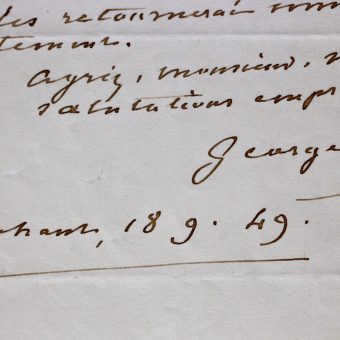 les retournerai
tement.
Agriz, monsieur,
salutations empr
George
, 18 9. 49.